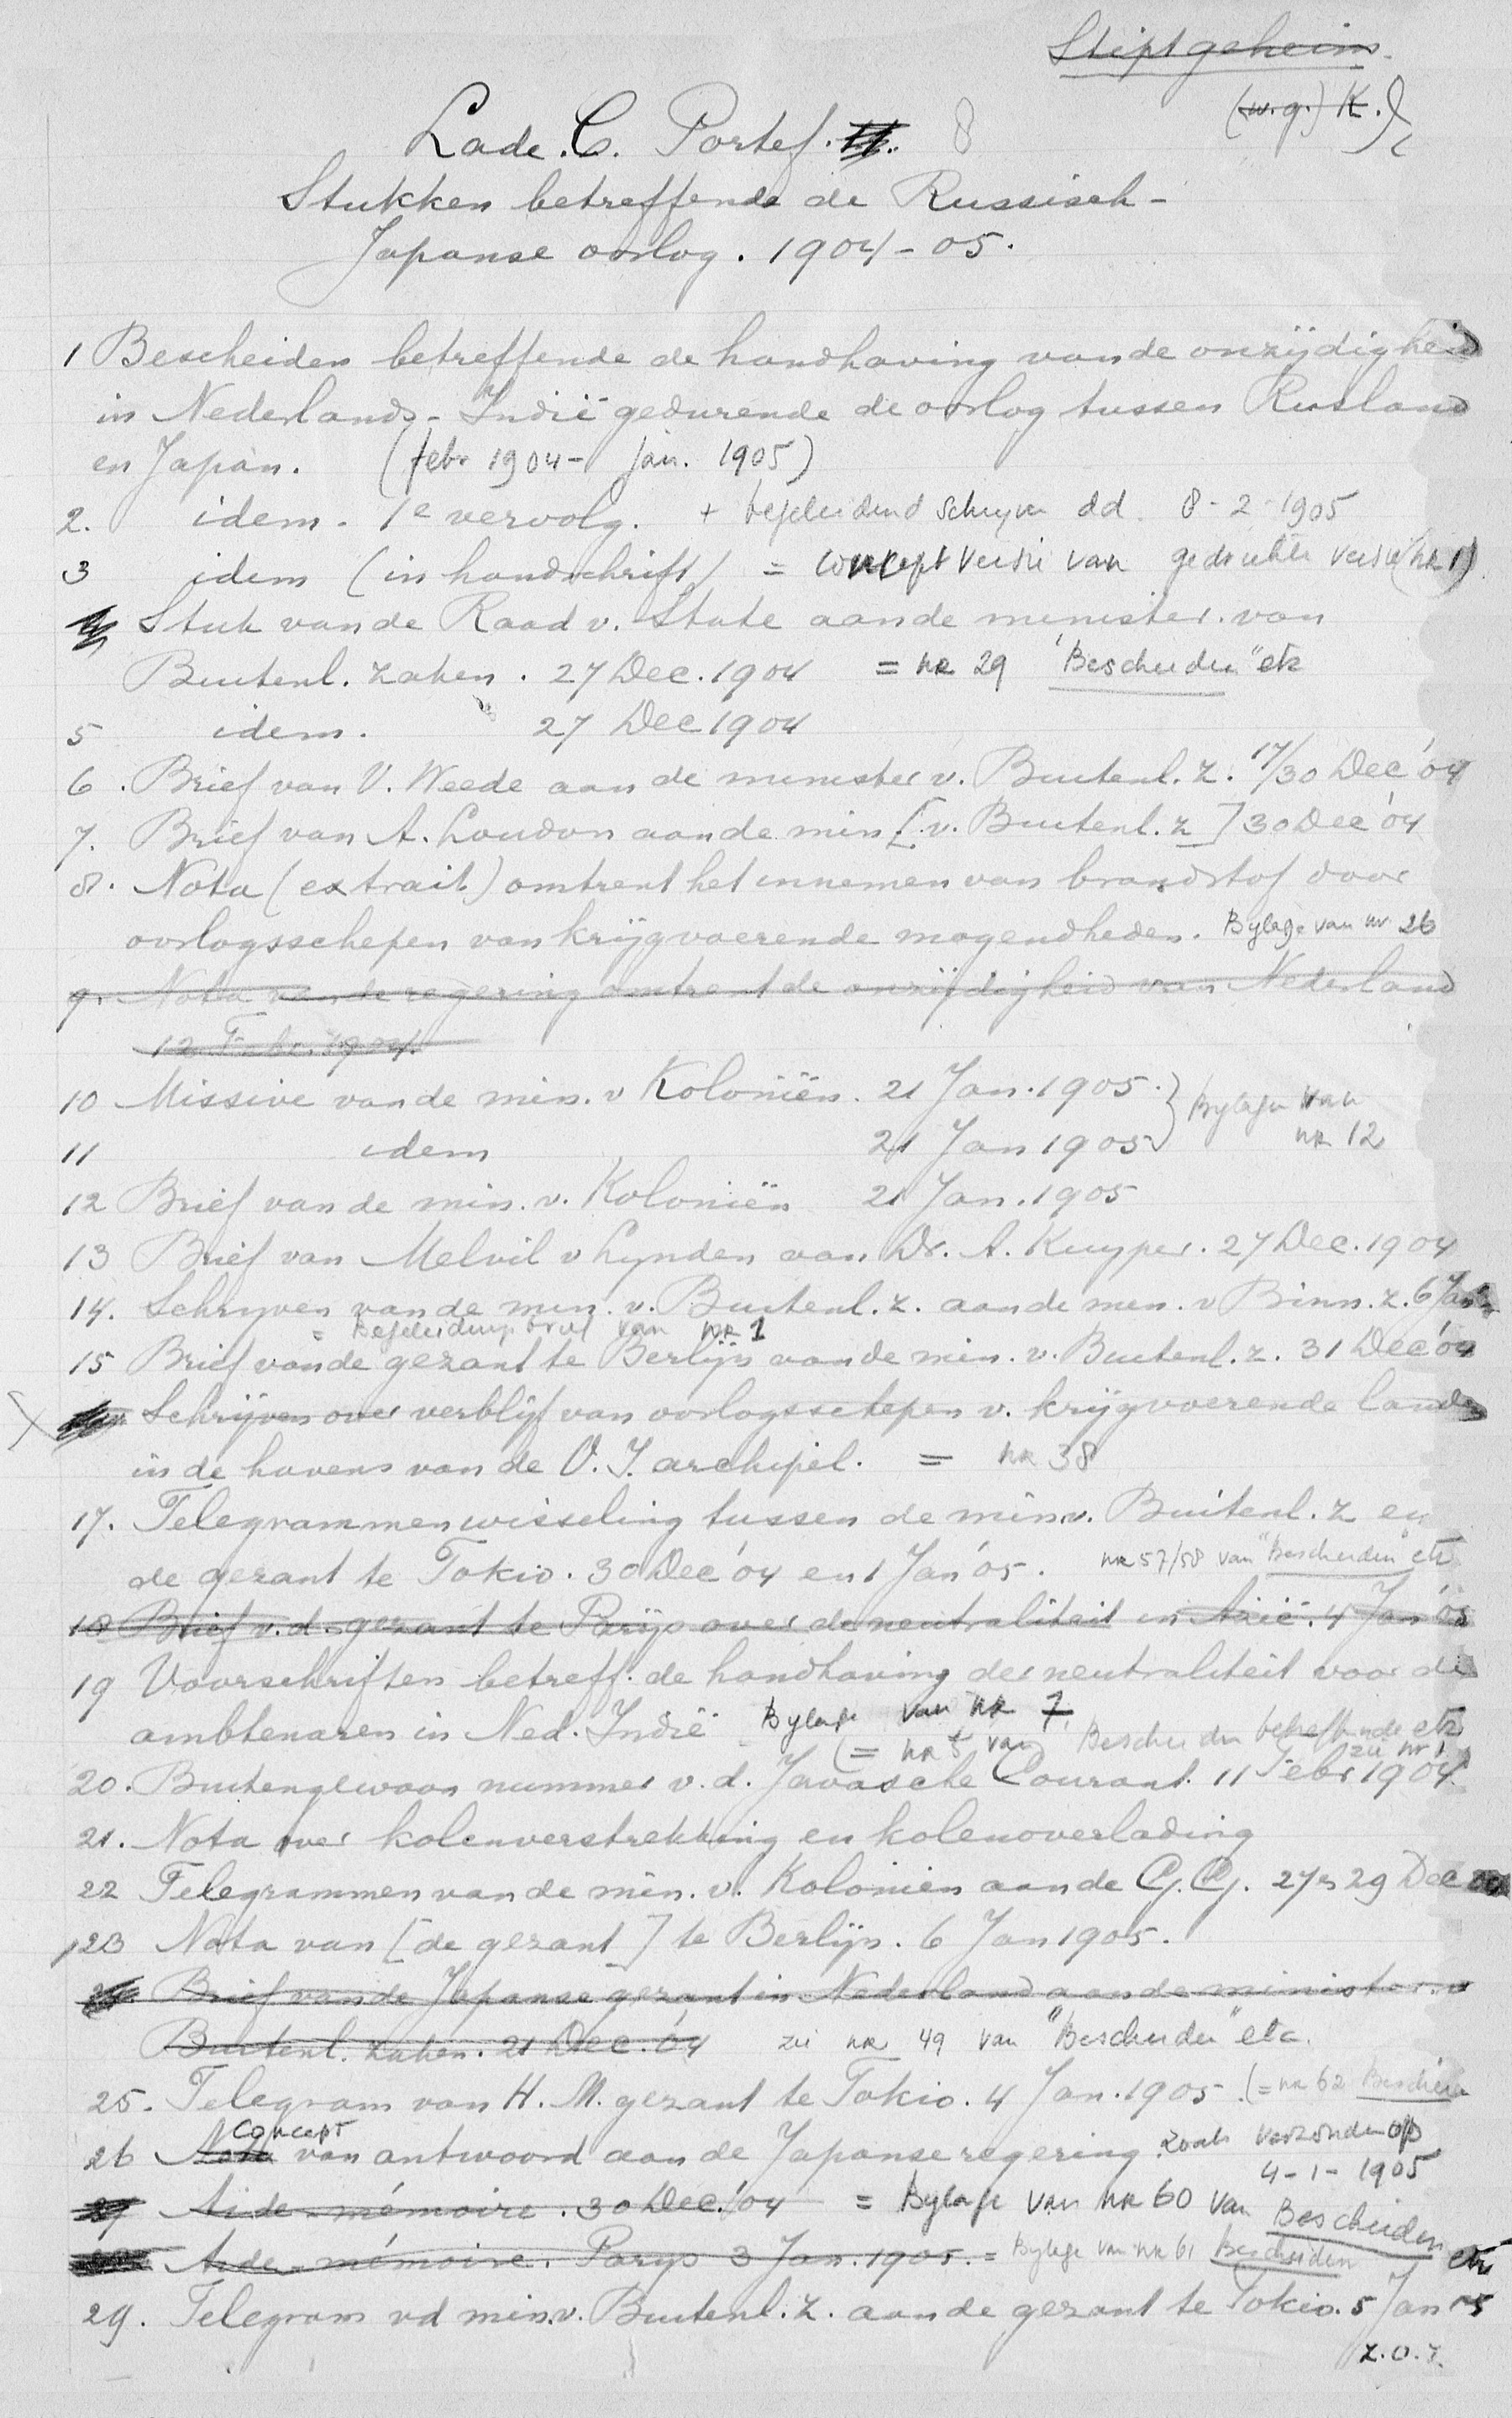 Stiptgeheim.
(w.g.) K.)
Lade. C. Portef. II. 8
Stukken betreffende de Russisch-
Japanse oorlog. 1904-05.
1 Bescheiden betreffende de handhaving van de onzijdigheid
in Nederlands-Indië gedurende de oorlog tussen Rusland
en Japan. (febr 1904 - jan. 1905)
2. idem. 1e vervolg. + begeleidend schryven dd. 8-2-1905
3 idem (in handschrift) = concept versie van gedrukte versie (nr 1)
Stuk van de Raad v. State aan de minister van
Buitenl. zaken. 27 Dec. 1904 = nr 29 "Bescheiden" etc
5 idem. 27 Dec 1904
6. Brief van V. Weede aan de minister v. Buitenl. z. 17/30 Dec '04
7. Brief van A. Loudon aan de min [v. Buitenl. z] 30 Dec '04
8. Nota (extrait) omtrent het innemen van brandstof door
oorlogsschepen van krijgvoerende mogendheden. Bylage van nr 26
9. Nota van de regering omtrent de onzijdigheid van Nederland
12 Febr. 1904.
10 Missive van de min. v Koloniën. 21 Jan. 1905. } Bylagen van
11 idem 21 Jan 1905 nr 12
12 Brief van de min. v. Koloniën 21 Jan. 1905
13 Brief van Melvil v Lynden aan Dr. A. Kuyper. 27 Dec. 1904
14. Schryven van de min. v. Buitenl. z. aan de min. v Binn. z. 6 Jan
= Begeleidings brief van nr 1
15 Brief van de gezant te Berlijn aan de min. v. Buitenl. z. 31 Dec '04
X Schrijven over verblijf van oorlogsschepen v. krijgvoerende landen
in de havens van de O. I. archipel. = nr 38
17. Telegrammenwisseling tussen de min. v. Buitenl. z en
de gezant te Tokio. 30 Dec '04 en 1 Jan '05. nr 57/58 van "Bescheiden" etc
18 Brief v. d. gezant te Parijs over de neutraliteit in Azië. 4 Jan '05
19 Voorschriften betreff. de handhaving der neutraliteit voor de
ambtenaren in Ned. Indië Bylage van nr 7
(= nr 5 van Bescheiden betreffende etc
zie nr 1
20. Buitengewoon nummer v. d. Javasche Courant. 11 Febr 1904.
21. Nota over kolenverstrekking en kolenoverlading
22 Telegrammen van de min. v. Koloniën aan de G.G. 27 en 29 Dec 04
23 Nota van [de gezant] te Berlijn. 6 Jan 1905.
Brief van de Japanse gezant in Nederland aan de minister v
Buitenl. zaken. 21 Dec. '04 zie nr 49 van "Bescheiden" etc.
25. Telegram van H. M. gezant te Tokio. 4 Jan. 1905. (= nr 62 Bescheiden
Concept
26 Nota van antwoord aan de Japanse regering. zoals verzonden op
4-1-1905
27 Aide-mémoire. 30 Dec. '04 = Bylage van nr 60 van Bescheiden etc
Aide-mémoire. Parys 3 Jan. 1905. = Bylage van nr 61 Bescheiden
29. Telegram vd min. v. Buitenl. z. aan de gezant te Tokio. 5 Jan 05
z.o.z.